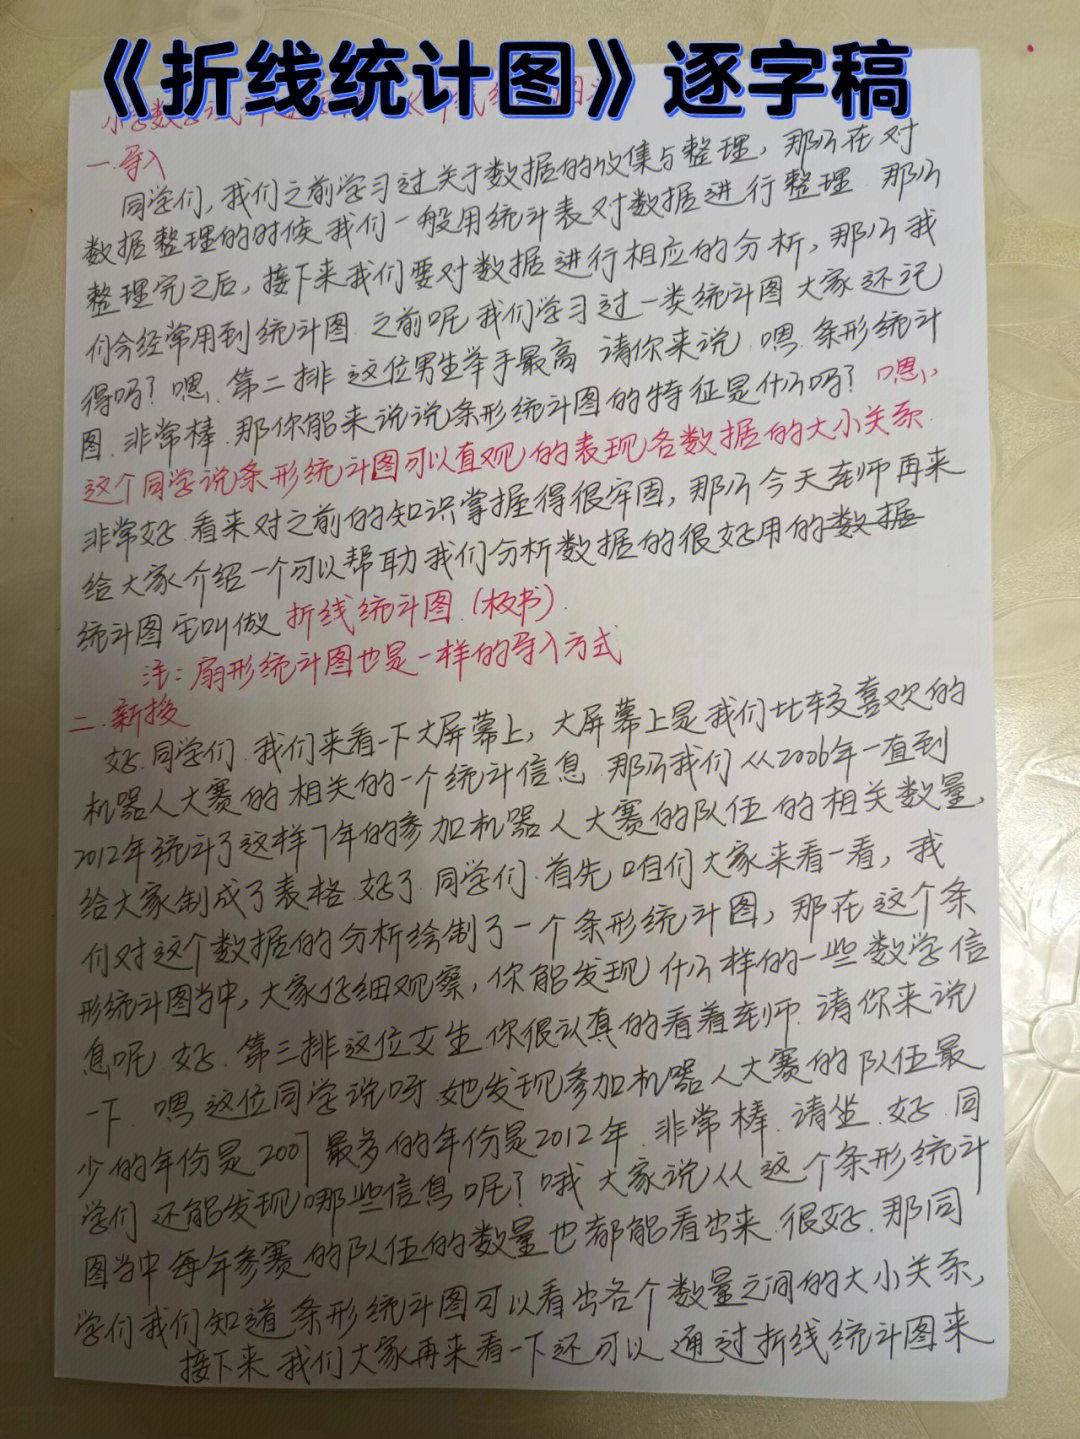 《折线统计图》逐字稿
小学数学
一.导入
同学们,我们之前学习过关于数据的收集与整理,那么在对
数据整理的时候我们一般用统计表对数据进行整理.那么
整理完之后,接下来我们要对数据进行相应的分析,那么我
们会经常用到统计图.之前呢我们学习过一类统计图大家还记
得吗?嗯.第二排这位男生举手最高 请你来说.嗯.条形统计
图.非常棒.那你能来说说条形统计图的特征是什么吗?嗯,
这个同学说条形统计图可以直观的表现各数据的大小关系.
非常好.看来对之前的知识掌握得很牢固,那么今天老师再来
给大家介绍一个可以帮助我们分析数据的很好用的数据
统计图它叫做折线统计图.(板书).
注:扇形统计图也是一样的导入方式
二.新授
好.同学们.我们来看一下大屏幕上,大屏幕上是我们比较喜欢的
机器人大赛的相关的一个统计信息.那么我们从2006年一直到
2012年统计了这样7年的参加机器人大赛的队伍的相关数量,
给大家制成了表格.好了.同学们.首先咱们大家来看一看,我
们对这个数据的分析绘制了一个条形统计图,那在这个条
形统计图当中,大家仔细观察,你能发现什么样的一些数学信
息呢.好.第三排这位女生.你很认真的看着老师.请你来说
一下.嗯这位同学说呀她发现参加机器人大赛的队伍最
少的年份是2007最多的年份是2012年.非常棒.请坐.好.同
学们还能发现哪些信息呢?哦大家说从这个条形统计
图当中每年参赛的队伍的数量也都能看出来.很好.那同
学们我们知道条形统计图可以看出各个数量之间的大小关系,
接下来我们大家再来看一下还可以通过折线统计图来